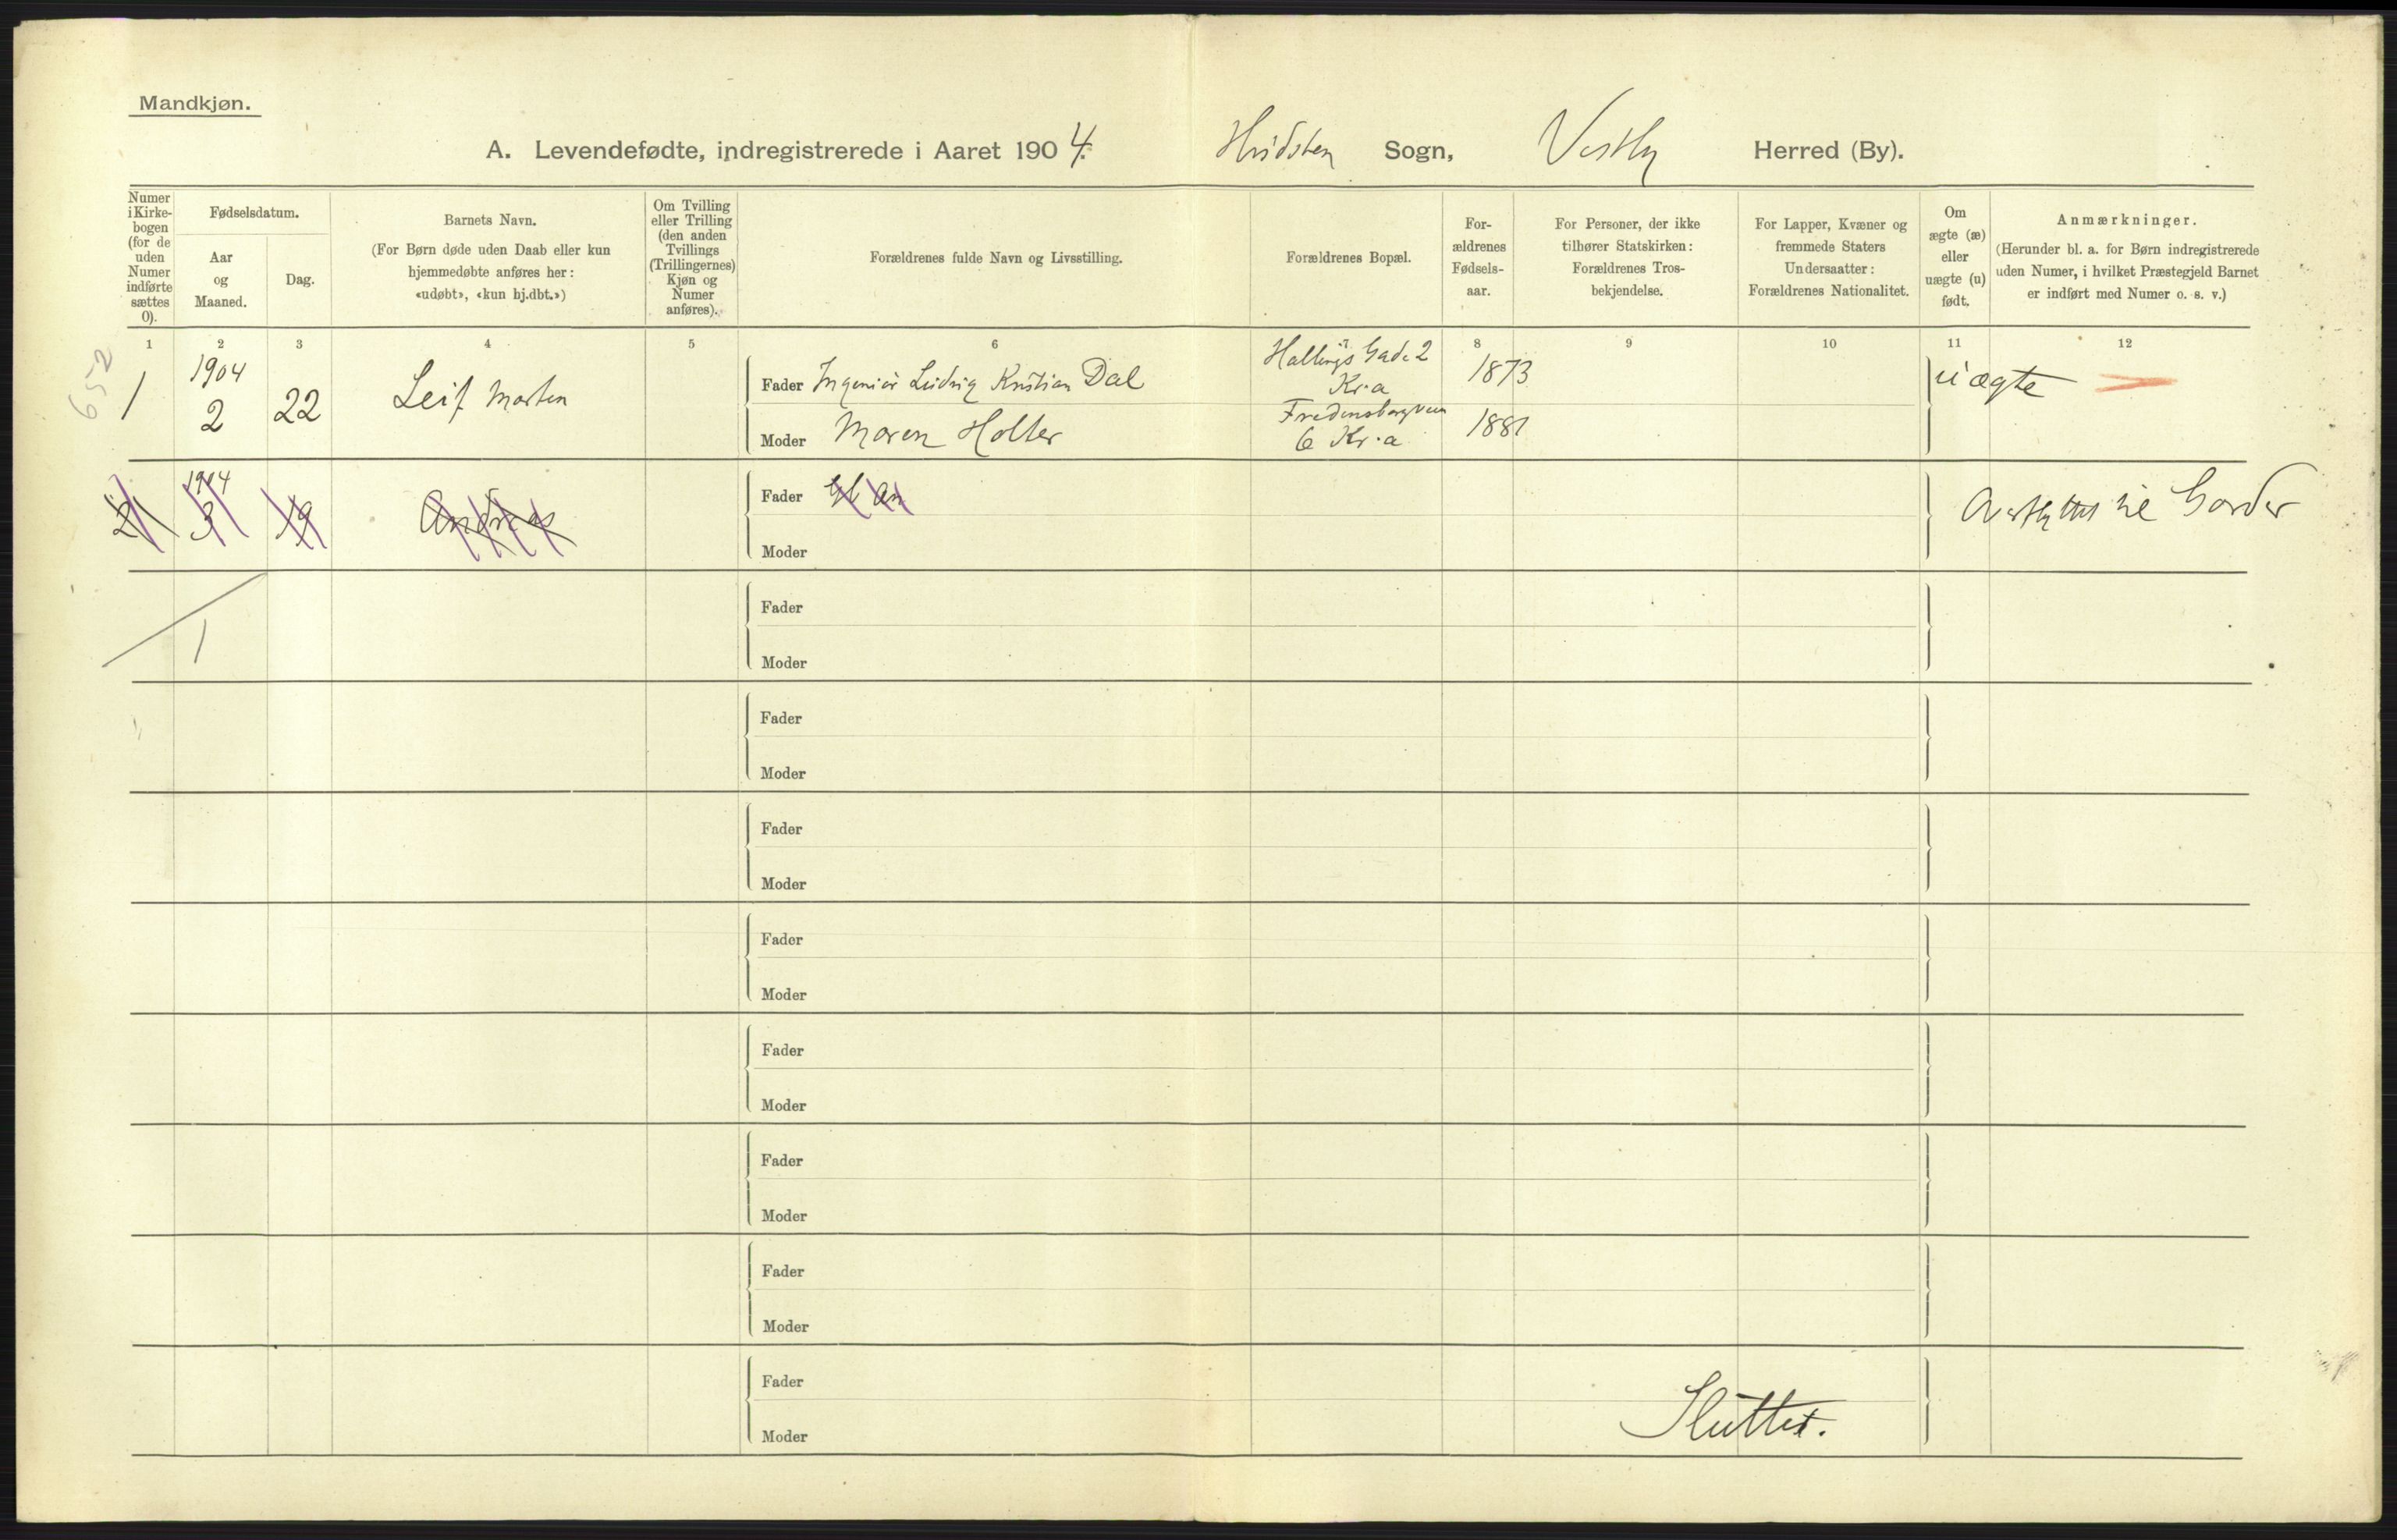 Mandkjøn.
A. Levendefødte, indregistrerede i Aaret 1904. Hvidsten Sogn, Vestby Herred (By).
Numer i Kirkebogen (for de uden Numer indførte sættes 0).
Fødselsdatum.
Aar og Maaned.
Dag.
Barnets Navn.
(For Børn døde uden Daab eller kun hjemmedøbte anføres her: «udøbt», «kun hj.dbt.»)
Om Tvilling eller Trilling (den anden Tvillings (Trillingernes) Kjøn og Numer anføres).
Forældrenes fulde Navn og Livsstilling.
Forældrenes Bopæl.
Forældrenes Fødselsaar.
For Personer, der ikke tilhører Statskirken: Forældrenes Trosbekjendelse.
For Lapper, Kvæner og fremmede Staters Undersaatter: Forældrenes Nationalitet.
Om ægte (æ) eller uægte (u) født.
Anmærkninger.
(Herunder bl. a. for Børn indregistrerede uden Numer, i hvilket Præstegjeld Barnet er indført med Numer o. s. v.)
1 2 3 4 5 6 7 8 9 10 11 12
652
1 1904 2 22 Leif Morten
Fader Ingeniör Ludvig Kristian Dal Hallings Gade 2 Kr.a 1873 uægte
Moder Maren Holter Fredensborgveien 6 Kr.a 1881
2 1904 3 19 Andreas
Fader Gl An
Moder
til Garder
1
Fader
Moder
Fader
Moder
Fader
Moder
Fader
Moder
Fader
Moder
Fader
Moder
Fader
Moder
Fader
Moder
Sluttet.